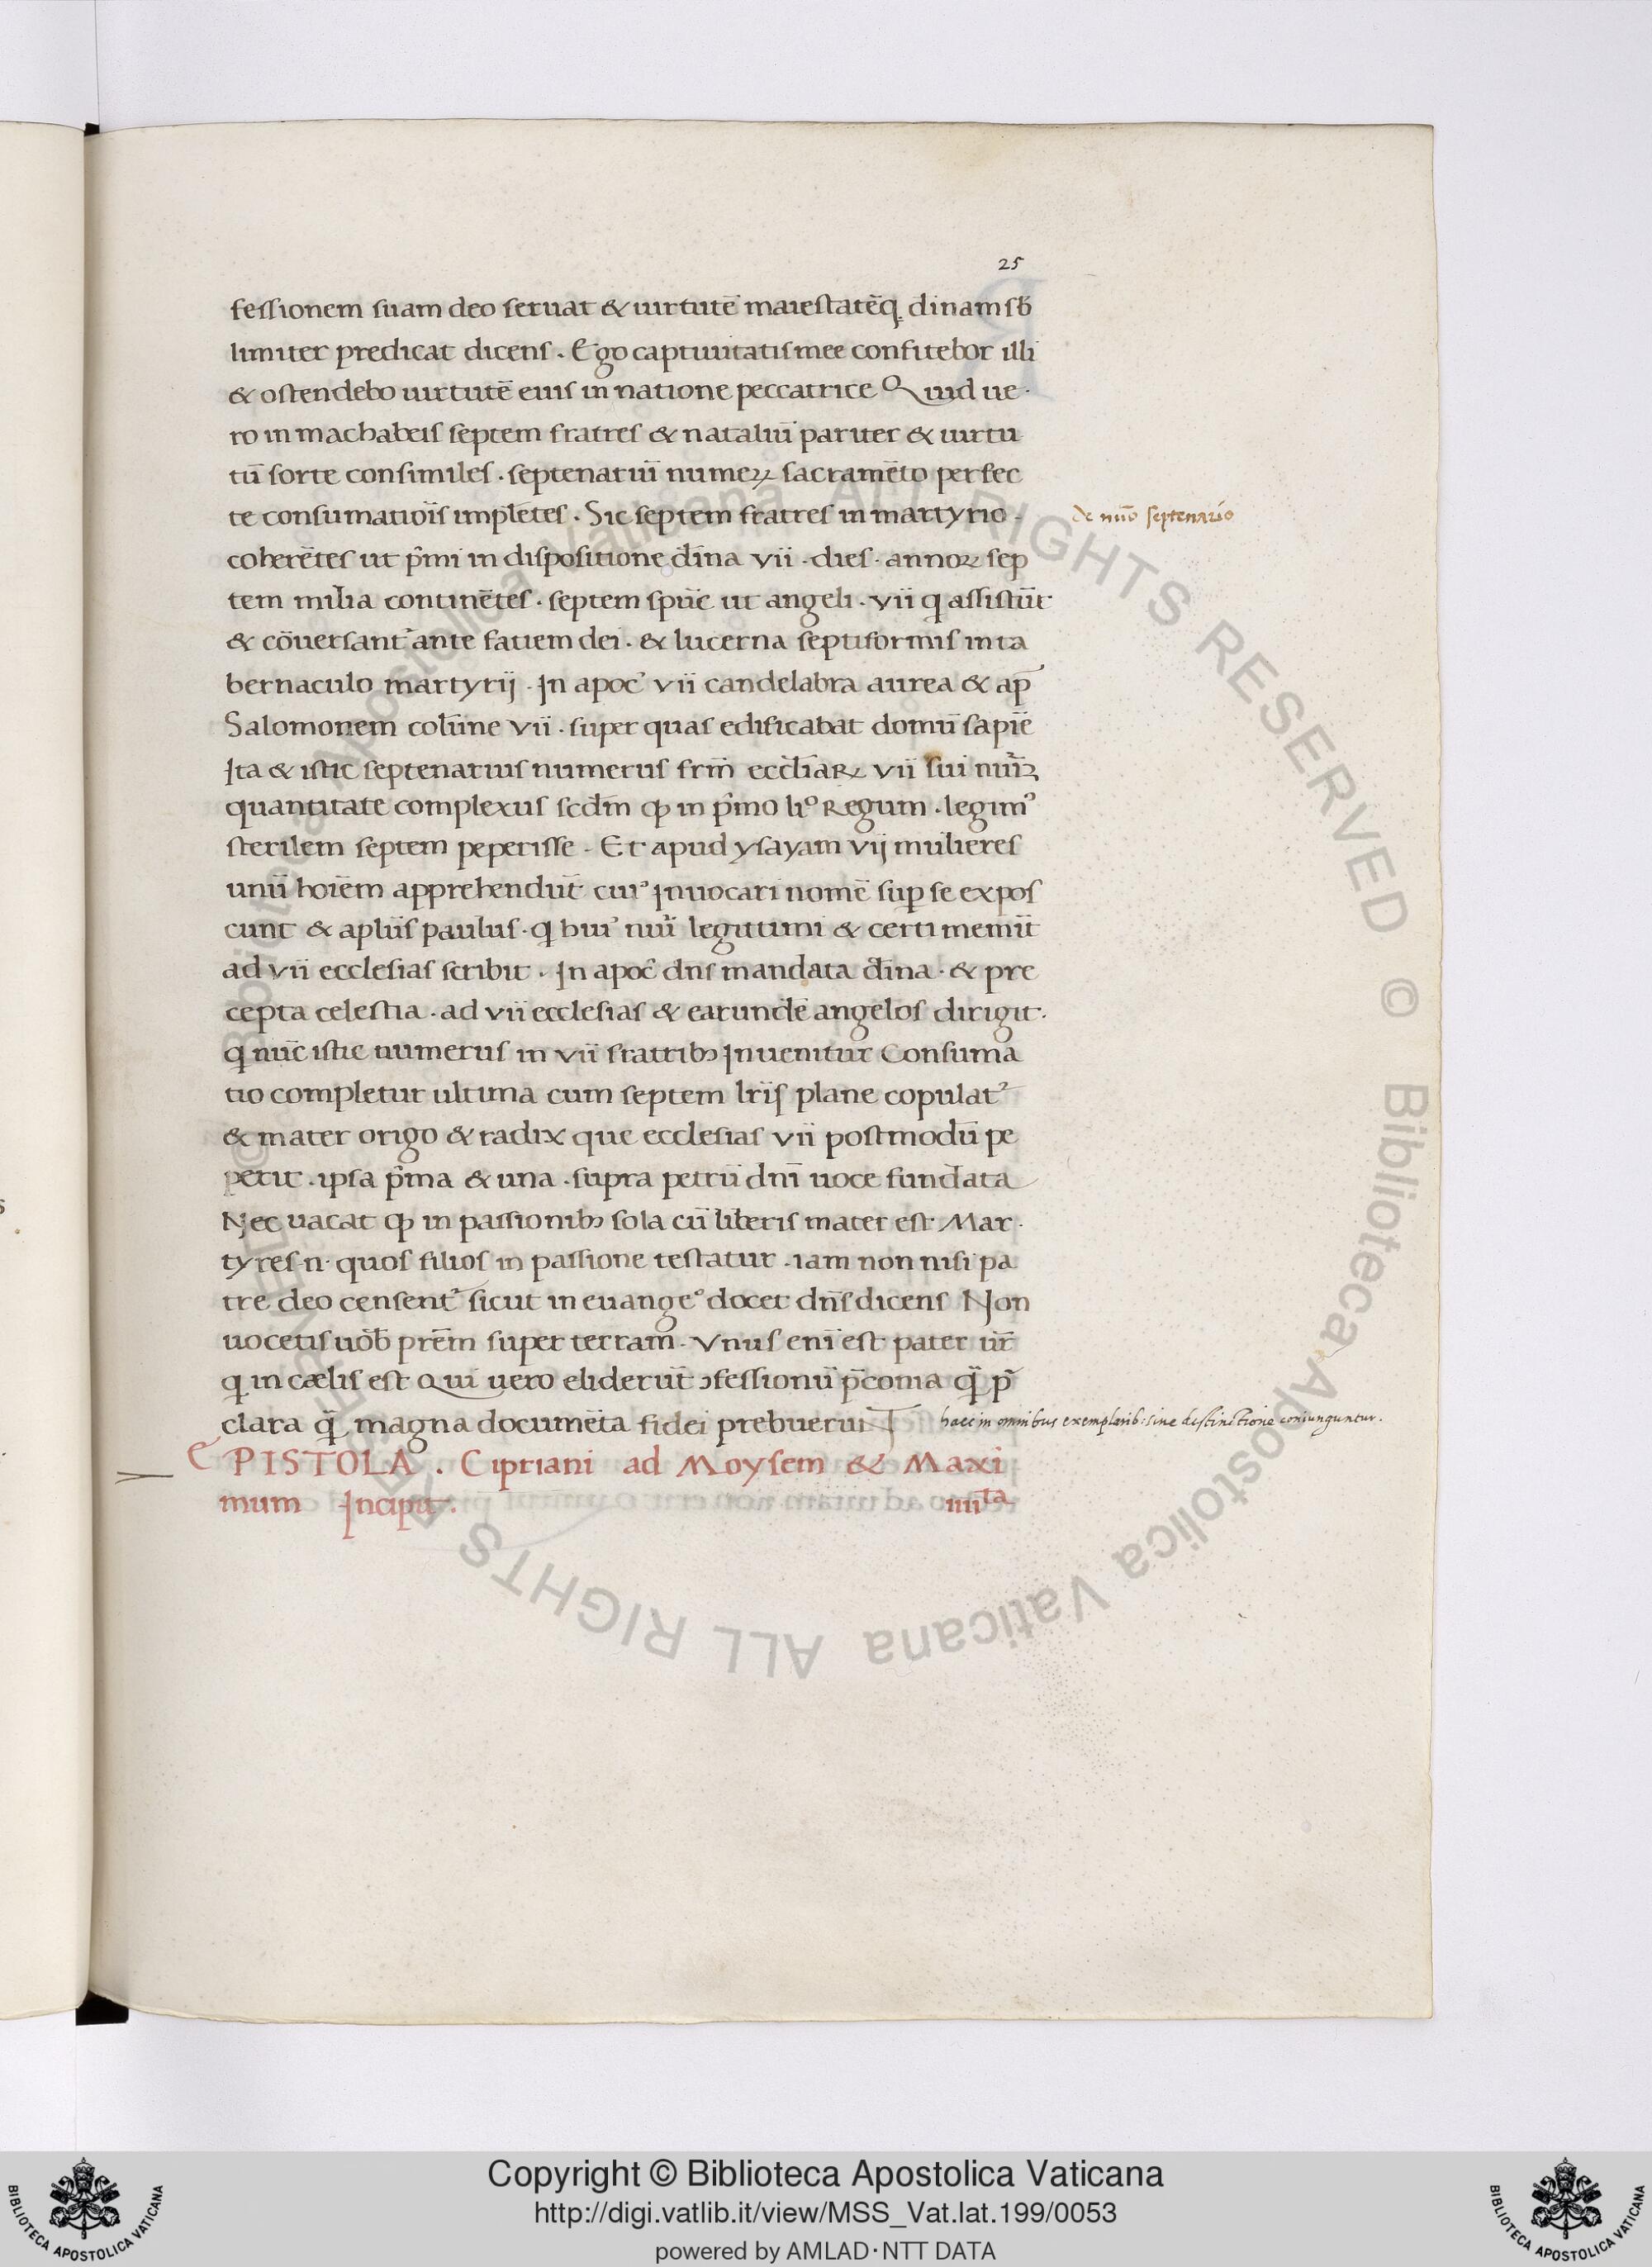 25
fessionem suam deo seruat & uirtutē maiestatēq̨ dinam sb̄
limiter predicat dicens . Ego captiuitatis mee confitebor illi
& ostendebo uirtutē eius in natione peccatrice Quid ue·
ro in machabeis septem fratres & nataliū pariter & uirtu
tū sorte consimiles . septenariū numeꝝ sacramēto perfec
te consumatiōis implētes . Sic septem fratres in martyrio ·
de nūo septenario
coherētes ut p̄mi in dispositione dīna vii · dies · annoꝝ sep
tem milia continētes . septem spūc ut angeli . vii q assistūt
& cōuersant᷒ ante fatiem dei . & lucerna septiformis in ta
bernaculo martyrij . In apoc᷒ vii candelabra aurea & ap̄
Salomonem colūne vii . super quas edificabat domū sapiē
Ita & istic septenarius numerus frm̄ eccl̄iaꝝ vii sui nūꝝ
quantitate complexus scd̄m ꝙ in p̄mo li° Regum . legim᷒
sterilem septem peperisse . Et apud ysayam vij mulieres
unū hoīem apprehendūt cui᷒ Inuocari nomē suꝑ se expos
cunt & aplūs paulus · q hui᷒ nūi legitimi & certi memīt
ad vii ecclesias scribit . In apoc̄ dns mandata dīna · & pre
cepta celestia . ad vii ecclesias & earundē angelos dirigit .
q nūc istic numerus in vii fratribꝫ Inuenitur Consuma
tio completur ultima cum septem lr̄is plane copulat᷒
& mater origo & radix que ecclesias vii postmodū pe
perit . ipsa p̄ma & una . supra petrū dnī uoce fundata
Nec uacat ꝙ in passionibꝫ sola cū liberis mater est Mar ·
tyres · n · quos filios in passione testatur . iam non nisi pa
tre deo censent᷒ sicut in euange° docet dn̄s dicens Non
uocetis uōb prēm super terram . Vnus enī est pater ur̄
q in cælis est Qui uero eliderūt ↄfessionū p̄conia q̄ꝫ p̄
clara q̄ꝫ magna documēta fidei prebuerunt
haec in omnibus exemplarib: sine distinctione coniunguntur.
EPISTOLA . Cipriani ad Moysem & Maxi
mum Incipit . iiiiᵗᵃ
Copyright © Biblioteca Apostolica Vaticana
http://digi.vatlib.it/view/MSS_Vat.lat.199/0053
powered by AMLAD·NTT DATA
BIBLIOTECA APOSTOLICA VATICANA
BIBLIOTECA APOSTOLICA VATICANA
© Biblioteca Apostolica Vaticana ALL RIGHTS RESERVED
© Biblioteca Apostolica Vaticana ALL RIGHTS RESERVED